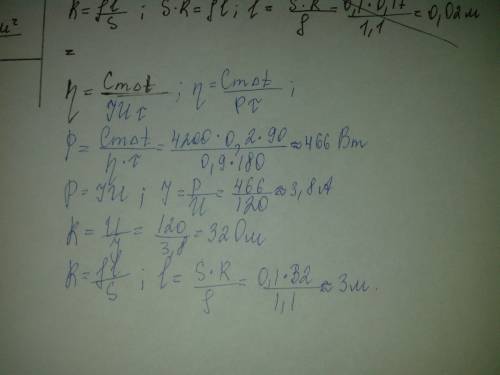 м²
R = ρl/S ; S·R = ρl ; l = S·R/ρ = 0,1·0,17/1,1 = 0,02м
=
η = Cm∆t/IUτ ; η = Cm∆t/Pτ ;
P = Cm∆t/η·τ = 4200·0,2·90/0,9·180 ≈ 466 Вт
P = IU ; I = P/U = 466/120 ≈ 3,8 А
R = U/I = 120/3,8 = 32 Ом
R = ρl/S ; l = S·R/ρ = 0,1·32/1,1 ≈ 3м.